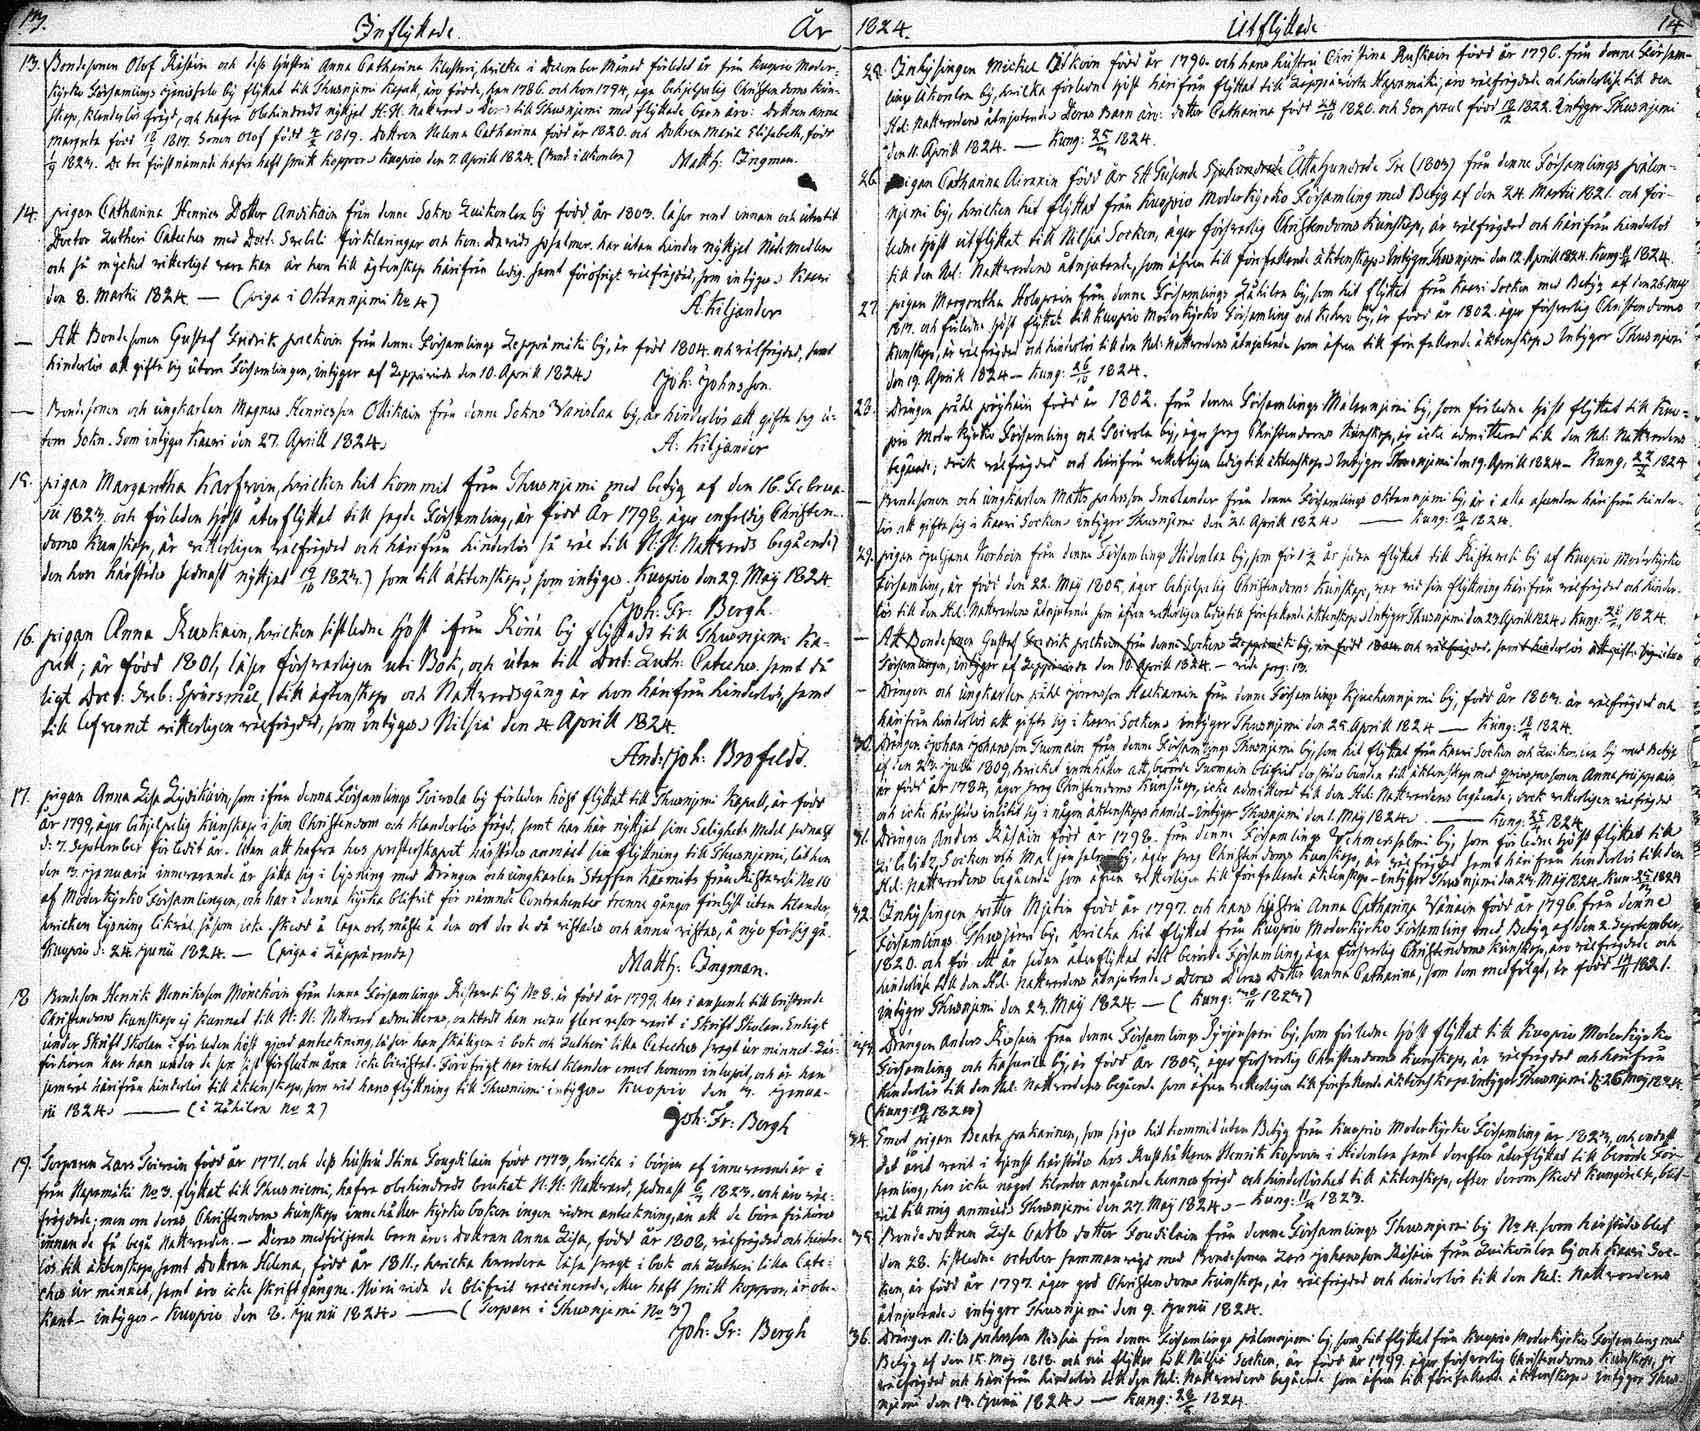 13.
Inflyttade.
År
13. Bondesonen Olof Räsäin och dess hustru Anna Catharina hvilka i December Månad förledet år från Kuopio Moder-
kyrko Församlings by flyttat till Thusnjemi Kapell, äro födde, han 1786. och hon 1794, äga behjelpelig Christendoms kun-
skap, klanderlös frejd, och hafva obehindradt nyttjat H. H. Nattvard. Deras till Thusnjemi med flyttade barn äro: Dottren Anna
Margreta född 1817. Sonen Olof född 1819. Dottren Helena Catharina född år 1820. och Dottren Maria Elisabeth, född
1823. De tre förstnämnde hafva haft smitt koppor. Kuopio den 7. Aprill 1824. Matth: Ingman.
14. pigan Catharina Henrics Dotter Andikain från denne Sokns Luikonlax by född år 1803. läser rent innan och utantill
Doctor Lutheri Cateches med Doct: Svebili förklaringar och Kon: Davids psalmer. har utan hinder nyttjat Nådemedlen
och så mycket vitterligt vara kan är hon till ägtenskap härifrån ledig, samt föröfrigt välfrägdad, som intygas Kaavi
den 8. Martii 1824. — (piga i Oktannjemi No 4)
A. Kiljander
— Att Bondesonen Gustaf Fredrik från denne Församlings Leppämäki by, är född 1804. och välfrägdad, samt
hinderlös att gifta sig utom Församlingen, intygas af Leppävirta den 10. Aprill 1824.
Joh: Johnsson.
— Bondesonen och ungkarlen Magnus Henricsson Ollikain från denne Sokns Varislax by, är hinderlös att gifta sig u-
tom Sokn. Som intygas Kaavi den 27. Aprill 1824.
A. Kiljander
15. pigan Margaretha Karhvin, hvilken hit kommit från Thusnjemi med betyg af den 16. Februa-
rii 1823. och förleden höst återflyttat till sagde Församling, är född År 1798, äger enfaldig Christen-
doms kunskap, är vitterligen välfrägdad och härifrån hinderlös så väl till H: H: Nattvards begående
den hon härstädes sednast nyttjat 1823.) som till äktenskap, som intygas. Kuopio den 29. Maij 1824.
Joh: Fr: Bergh.
16. pigan Anna Ruskain, hvilken sistledne höst ifrån by flyttade till Thusnjemi Ka-
pell; är född 1801, läser försvarligen uti Bok, och utan till Doct: Luth: Cateches. samt
Doct: Sveb: Spörsmål, till ägtenskap och Nattvardsgång är hon härifrån hinderlös, samt
till lefvernet vitterligen välfrägdad, som intygas Nilsiä den 4. Aprill 1824.
And: Joh: Brofeldt.
17. pigan Anna Lisa Lydikäin, som ifrån denna Församlings Toivola by förleden höst flyttat till Thusnjemi Kapell, är född
år 1799, äger behjelpelig kunskap i sin Christendom och klanderlös frägd, samt har här nyttjat sina Salighets Medel sednast
d: 7. September förledit år. Utan att hafva hos presterskapet härstädes anmält sin flyttning till Thusnjemi, lät hon
den 3. Januarii innevarande år sätta sig i lysning med Drängen och ungkarlen Staffan från No 10
af Moderkyrko Församlingen, och har i denna kyrka blifvit för nämnde Contrahenter trenne gånger förelyst utan klander,
hvilken lysning likväl, såsom icke skedd å laga ort, måste å den ort der de då vistades och ännu vistas, å nyo för sig gå.
Kuopio d: 24. Junii 1824. — (piga i Läppäranta)
Matth: Ingman.
18 Bondeson Henrik Henriksson Mönckäin från denna Församlings by No 8. är född år 1799. har i anseende till bristande
Christendoms kunskap ej kunnat till H: H: Nattvard admitteras, oaktadt han redan flere resor varit i Skrift Skolan. Enligt
under Skrift Skolan i förleden höst gjord anteckning, läser han skäligen i bok och Lutheri lilla Cateches svagt ur minnet. Läs-
förhören har han under de sex sist förflutna åren icke bivistat. Föröfrigt har intet klander emot honom inlupit, och är han
jemväl härifrån hinderlös till äktenskap, som vid hans flyttning till Thusniemi intygas Kuopio den Janua-
rii 1824. — (i Zähilax No 2)
Joh: Fr: Bergh
19. Torparen Lars Toivain född år 1771. och dess hustru Stina Tougilain född 1773, hvilka i början af innevarande år i
från Hapamäki No 3. flyttat till Thusniemi, hafva obehindradt brukat H. H. Nattvard, sednast 1823. och äro väl-
frägdade; men om deras Christendoms kunskap innehåller kyrko boken ingen vidare anteckning, än att de böra förhöras
innan de få begå Nattvarden. — Deras medföljande barn äro: Dottran Anna Lisa, född år 1808, välfrägdad och hinder-
lös till äktenskap, samt Dottran Helena, född år 1811, hvilka hvardera läsa svagt i bok och Lutheri lilla Cate-
ches ur minnet, samt äro icke skriftgångne. Huruvida de blifvit vaccinerade, eller haft smitt koppor, är obe-
kant, intygas. Kuopio den 8. Junii 1824. — (Torpare i Thusnjemi No 3)
Joh: Fr: Bergh
1824.
Utflyttade
14
25. Inhysingen Michel och hans hustru Christina Ruskain född år 1796. från denne Försam-
lings Ukonlax by, hvilka förledne höst härifrån flyttat till Leppävirta Hapamäki, äro välfrägdade och hinderlöse till den
Hel: Nattvardens åtnjutande. Deras Barn äro: dotter Catharina född 1820. och Son paul född 1822. Intygar Thusnjemi
den 11. Aprill 1824. — Kung: 25 1824.
26. pigan Catharina Airaxin född år Ett Tusende Sjuhundrade Åttahundrade Tre (1803) från denne Församlings pälon-
njemi by, hvilken hit flyttat från Kuopio Moderkyrko Församling med Betyg af den 24. Martii 1821. och för-
ledne höst utflyttat till Nilsiä Socken, äger försvarlig Christendoms Kunskap, är välfrägdad och härifrån hinderlös
till den Hel: Nattvardens åtnjutande, som äfven till förefallande äktenskap. Intygar Thusnjemi den 12. Aprill 1824. Kung: 1824.
27. pigan Margretha Holopain från denne Församlings Zähilax by, som hit flyttat från Kaavi Socken med Betyg af den 26. Maij
1817. och förledne höst flyttat till Kuopio Moderkyrko Församling och by, är född år 1802. äger försvarlig Christendoms
kunskap, är välfrägdad och hinderlös till den Hel: Nattvardens åtnjutande som äfven till förefallande äktenskap. Intygar Thusnjemi
den 19. Aprill 1824 — Kung: 1824.
28. Drängen påhl född år 1802. från denne Församlings Melansnjemi by, som förledne höst flyttat till Kuo-
pio Moder kyrko Församling och Toivola by, äger svag Christendoms Kunskap, är icke admitterad till den Hel: Nattvardens
begående; dock välfrägdad och härifrån vitterligen ledig till äktenskap. Intygar Thusnjemi den 19. Aprill 1824 — Kung: 1824
— Bondesonen och ungkarlen Matts Smolander från denne Församlings Oktannjemi by, är i alla afseenden härifrån hinder-
lös att gifta sig i Kaavi Socken. intygar Thusnjemi den 21. Aprill 1824. — Kung: 1824.
29. pigan Juljana Korhoin från denne Församlings Hidenlax by, som för ½ år sedan flyttat till by af Kuopio Moderkyrko
Församling, är född den 22. Maij 1805, äger behjelpelig Christendoms Kunskap, var vid sin flyttning härifrån välfrägdad och hinder-
lös till den Hel: Nattvardens åtnjutande som äfven vitterligen ledig till förefallande äktenskap. Intygar Thusnjemi den 23. Aprill 1824. Kung: 1824.
— Att Bondesonen Gustaf Fredrik från denne Sockens Leppämäki by, är född 1804. och välfrägdad, samt hinderlös att gifta sig utom
Församlingen, intygar af Leppävirta den 10. Aprill 1824. — vide pag: 13.
— Drängen och ungkarlen påhl från denne Församlings by, född år 1803. är välfrägdad och
härifrån hinderlös att gifta sig i Kaavi Socken. intygar Thusnjemi den 25. Aprill 1824 — Kung: 1824.
30. Drängen Johan Johansson Tuomain från denne Församlings Thusnjemi by, som hit flyttat från Kaavi Socken och Luikonlax by med Betyg
af den 23. Julii 1809, hvilket innehåller att, berörde Tuomain blifvit derstädes bunden till äktenskap med qvinspersonen Anna
är född år 1784, äger svag Christendoms Kunskap, icke admitterad till den Hel: Nattvardens begående; dock vitterligen välfrägdad
och icke härstädes inlåtit sig i någon äktenskaps handel. Intygar Thusnjemi den 1. Maij 1824. — Kung: 1824
31. Drängen Anders Räsäin född år 1798. från denne Församlings Vehmersalmi by, som förledne höst flyttat till
Socken och by, äger svag Christendoms Kunskap, är välfrägdad samt härifrån hinderlös till den
Hel: Nattvardens begående som äfven vitterligen till förefallande äktenskap. — intygar Thusnjemi den 23. Maij 1824. Kung: 1824
32. Inhysingen petter född år 1797. och hans hustru Anna Catharina Vänäin född år 1796. från denne
Församlings Thusnjemi by, hvilka hit flyttat från Kuopio Moderkyrko Församling med Betyg af den 2. September,
1820. och för ett år sedan återflyttat till berörde Församling, äga försvarlig Christendoms Kunskap, äro välfrägdade och
hinderlöse till den Hel: Nattvardens åtnjutande. Deras Dotter Anna Catharina, som dem medföljt, är född 1821.
intygar Thusnjemi den 23. Maij 1824 — (Kung: 1823)
33. Drängen Anders från denne Församlings by, som förledne höst flyttat till Kuopio Moderkyrko
Församling och by, är född år 1805, äger försvarlig Christendoms Kunskap, är välfrägdad och härifrån
hinderlös till den Hel: Nattvardens begående som äfven vitterligen till förefallande äktenskap. intygar Thusnjemi d: 26 Maij 1824
(Kung: 1824)
34. Emot pigan Beata pakarinen, som säges hit kommit utan Betyg från Kuopio Moderkyrko Församling år 1823, och endast
det året varit i tjenst härstädes hos Rusthållaren Henrik i Hidenlax samt derefter återflyttat till berörde För-
samling, har icke något klander angående hennes frägd och hinderlöshet till äktenskap, efter derom skedd kungörelse, blif-
vit till mig anmäldt. Thusnjemi den 27. Maij 1824. — Kung: 1823.
35. Bondedottren Lisa dotter Toudilain från denne Församlings Thusnjemi by No 4. som härstädes blef
den 28. sistledne october sammanvigd med Bondesonen Lars Johansson Räsäin från Luikonlax by och Kaavi Soc-
ken, är född år 1797. äger god Christendoms Kunskap, är välfrägdad och hinderlös till den Hel: Nattvardens
åtnjutande. intygar Thusnjemi den 9. Junii 1824.
36. Drängen Nils från denne Församlings pälonnjemi by, som hit flyttat från Kuopio Moderkyrko Församling med
Betyg af den 15. Maij 1818. och nu flyttar till Nilsiä Socken, är född år 1799. äger försvarlig Christendoms Kunskap, är
välfrägdad och härifrån hinderlös till den Hel: Nattvardens begående som äfven till förefallande äktenskap. intygar Thus-
njemi den 13. Junii 1824. — Kung: 1824.